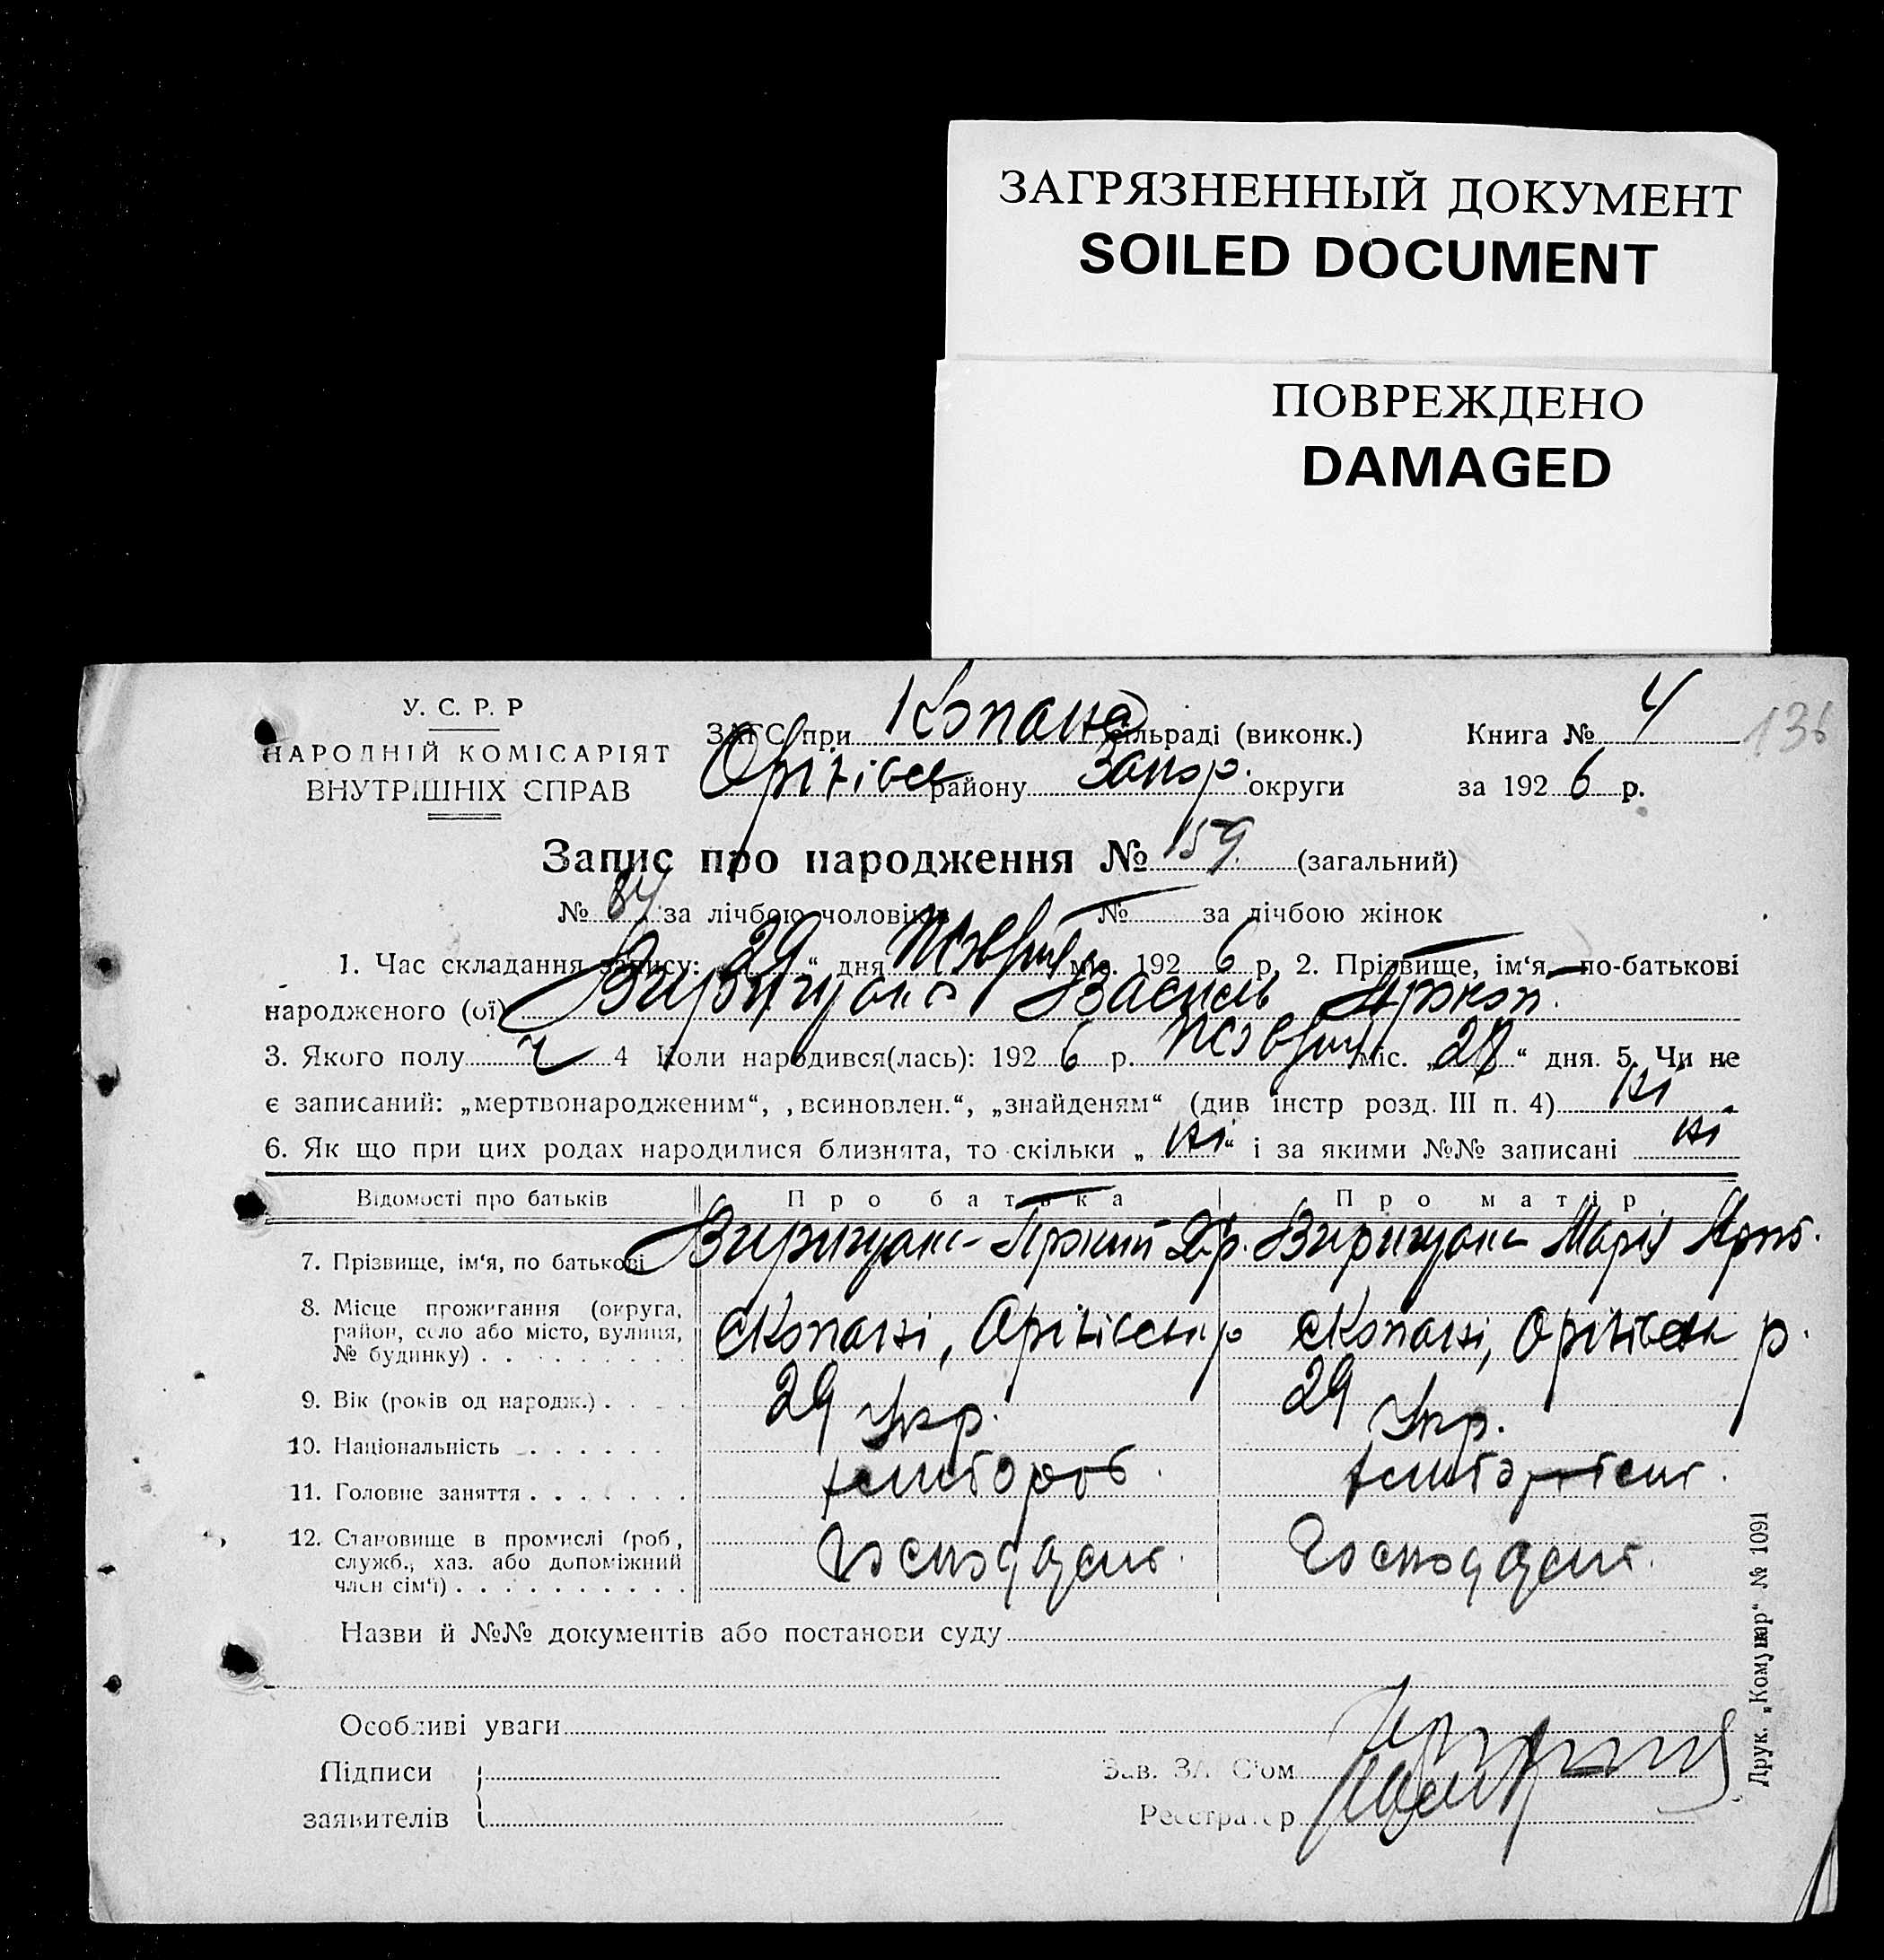 ЗАГРЯЗНЕННЫЙ ДОКУМЕНТ
SOILED DOCUMENT
ПОВРЕЖДЕНО
DAMAGED
У. С. Р. Р
НАРОДНІЙ КОМІСАРІЯТ
ВНУТРІШНІХ СПРАВ
ЗАГС при Копан сільраді (виконк.) Книга № 4 136
Оріхівск району Запор. округи за 1926 р.
Запис про народження № 159 (загальний)
№ 84 за лічбою чоловіків № за лічбою жінок
1. Час складання запису: „29“ дня Жовтня міс. 1926 р. 2. Прізвище, ім‘я, по-батькові
народженого (ої) Василь Прокоп.
3. Якого полу ч 4 Коли народився(лась): 1926 р. Жовтня міс. „28“ дня. 5. Чи не
є записаний: „мертвонародженим“, „всиновлен.“, „знайденям“ (див інстр розд. III п. 4) ні
6. Як що при цих родах народилися близнята, то скільки „ні“ і за якими №№ записані ні
Відомості про батьків Про батька Про матір
7. Прізвище, ім‘я, по батькові Марія
8. Місце проживання (округа, район, село або місто, вулиця, № будинку) с Копані, Оріхівськ р с Копані, Оріхівськ р.
9. Вік (років од народж.) 29 29
10. Національність Укр. Укр.
11. Головне заняття хлібороб. хлібороб
12. Становище в промислі (роб, служб., хаз. або допоміжний член сім‘ї)
Назви й №№ документів або постанови суду
Особливі уваги
Підписи заявителів
Зав. ЗАГС‘ом
Реєстратор
Друк. „Комунар“ № 1091